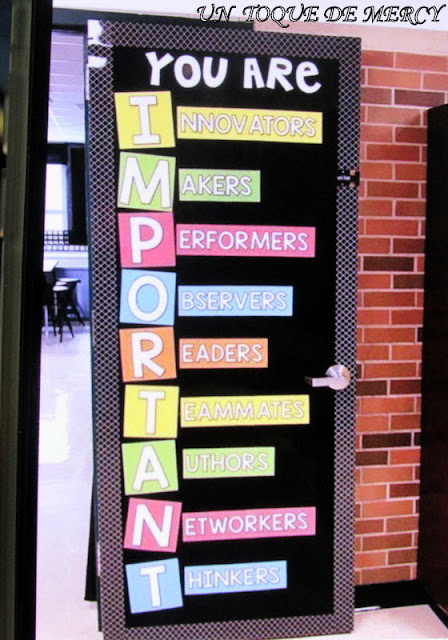 UN TOQUE DE MERCY
YOU ARE
INNOVATORS
MAKERS
PERFORMERS
OBSERVERS
READERS
TEAMMATES
AUTHORS
NETWORKERS
THINKERS